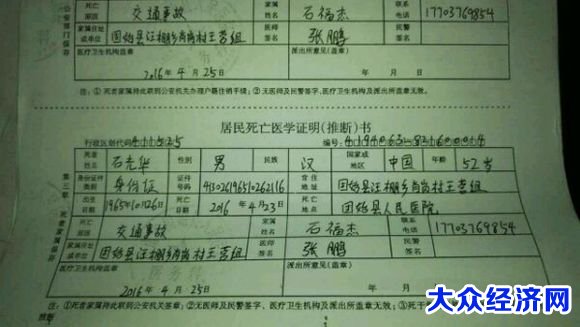 死亡 原因 交通事故 家属 姓名 石福杰 联系 电话 17703769854
家属住址 或单位 固始县汪棚乡肖岗村王营组 医师 签名 张鹏 民警 签名
医疗卫生机构盖章 派出所意见(盖章)
2016年4月25日 年 月 日
注:①死者家属持此联到公安机关办理户籍注销手续;②无医师及民警签字、医疗卫生机构及派出所盖章无效。
居民死亡医学证明(推断)书
行政区划代码 411525 编号:
死者 姓名 石光华 性别 男 民族 汉 国家或 地区 中国 年龄 52岁
身份证件 类别 身份证 证件 号码 413026196510262116 常住 地址 固始县汪棚乡肖岗村王营组
出生 日期 1965年10月26日 死亡 日期 2016年4月23日 死亡 地点 固始县人民医院
死亡 原因 交通事故 家属 姓名 石福杰 联系 电话 17703769854
家属住址 或单位 固始县汪棚乡肖岗村王营组 医师 签名 张鹏 民警 签名
医疗卫生机构盖章 派出所意见(盖章)
2016年4月25日 年 月 日
注:①死者家属持此联到公安机关签章;②无医师及民警签字、医疗卫生机构及派出所盖章无效;③死
第三联 死者家属保存
大众经济网